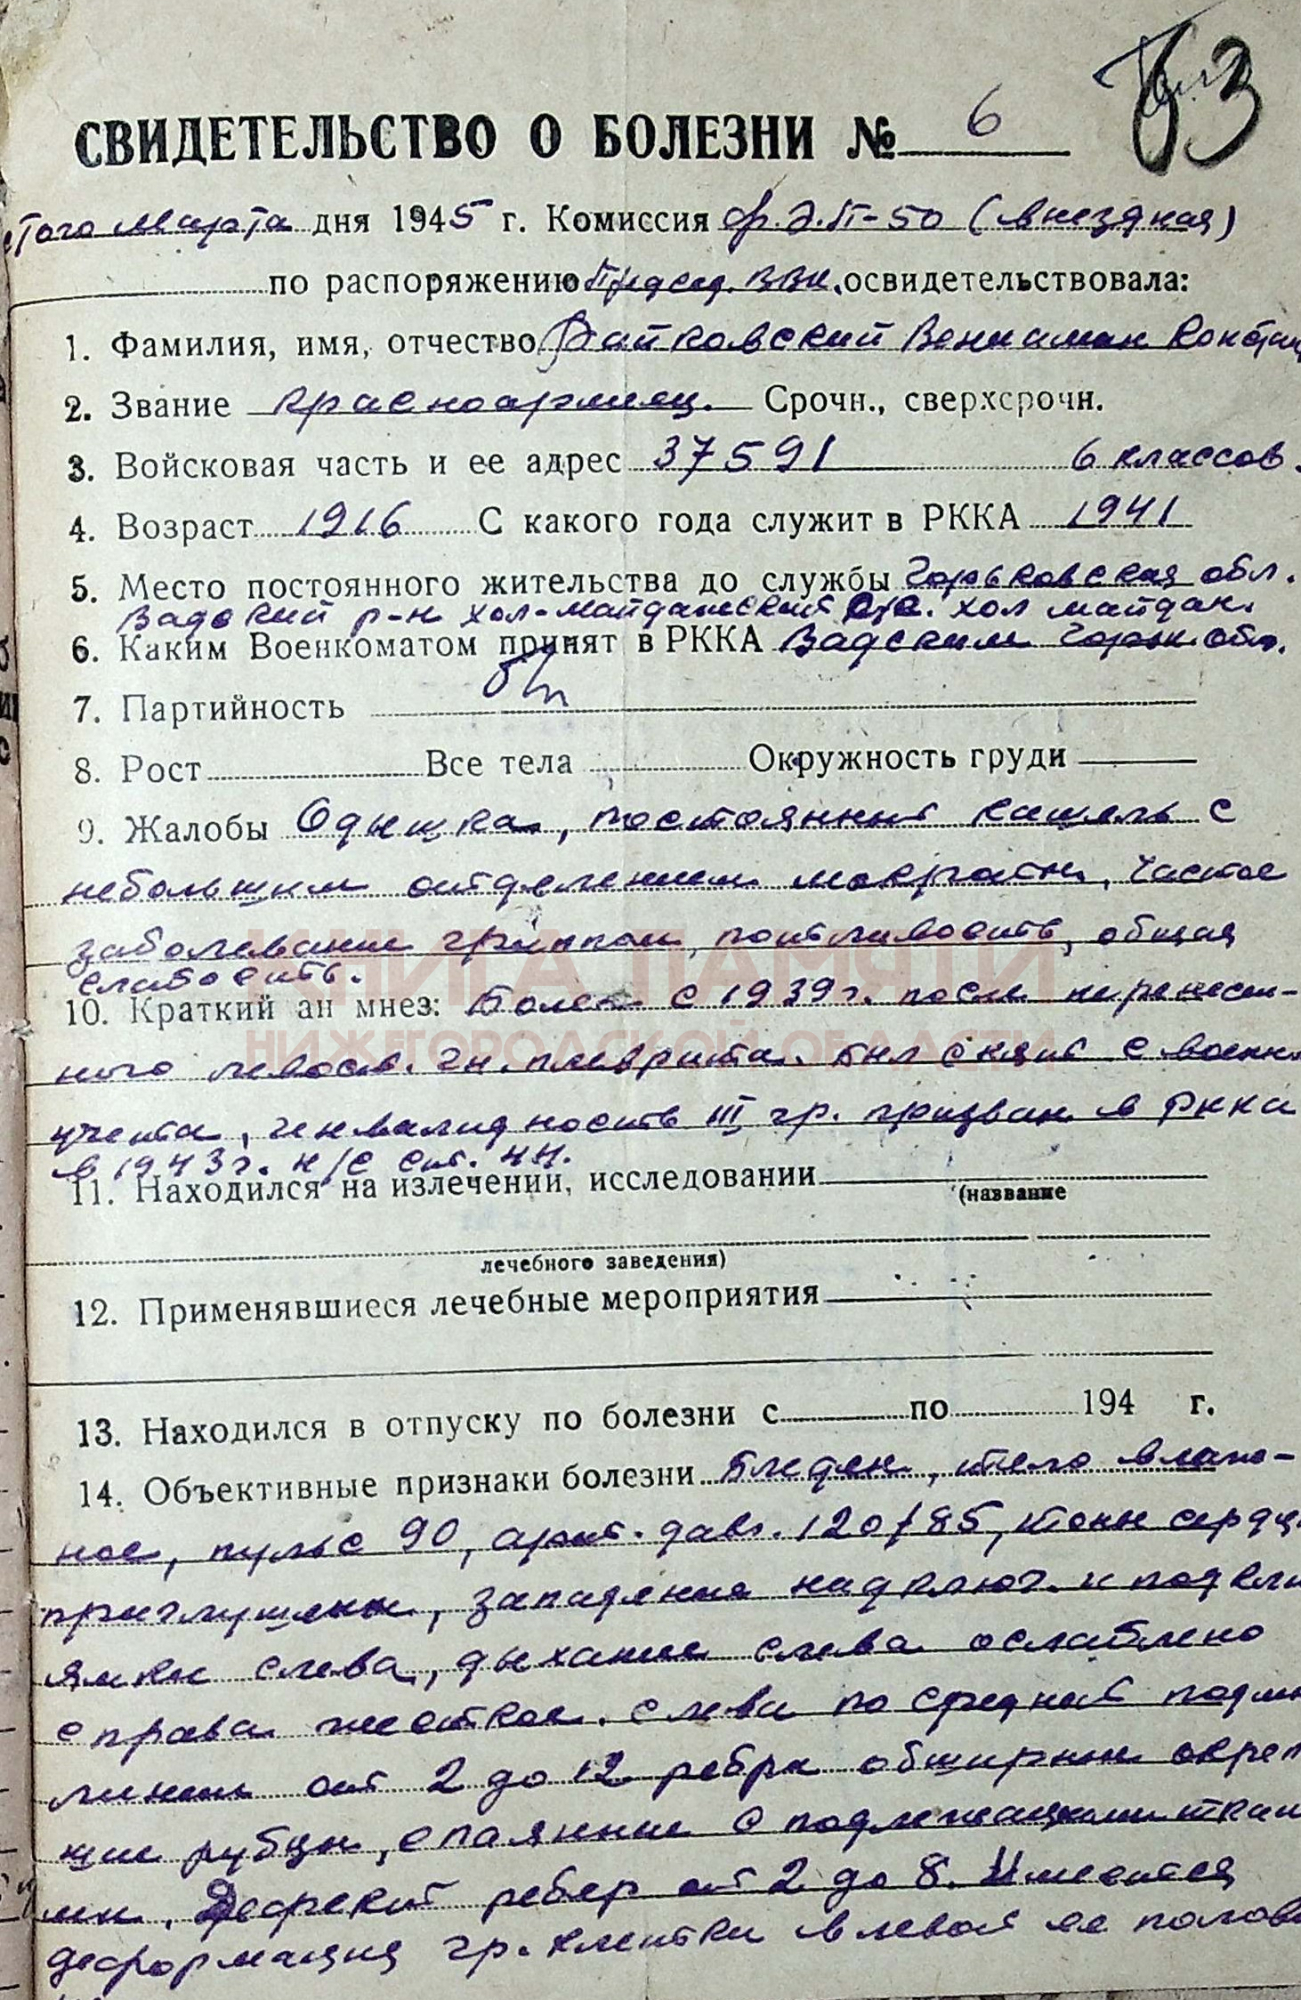 63
СВИДЕТЕЛЬСТВО О БОЛЕЗНИ № 6
того марта дня 1945 г. Комиссия ф.Э.П-50 (выездная)
по распоряжению Председ. ВВК. освидетельствовала:
1. Фамилия, имя, отчество Райковский Вениамин Констан
2. Звание красноармеец. Срочн., сверхсрочн.
3. Войсковая часть и ее адрес 37591 6 классов.
4. Возраст 1916 С какого года служит в РККА 1941
5. Место постоянного жительства до службы Горьковская обл.
Вадский р-н хол-майданский с/с. хол майдан.
6. Каким Военкоматом принят в РККА Вадским Горьк. обл.
7. Партийность б/п
8. Рост Все тела Окружность груди
9. Жалобы Одышка, постоянный кашель с
небольшим отделением мокроты, частое
заболевание гриппом, потливость, общая
слабость.
10. Краткий ан мнез: Болен с 1939 г. после перенесен-
ного левост. гн. плеврита. Был снят с воен.
учета, инвалидность III гр. призван в РККА
в 1943 г. н/с ст. НН.
11. Находился на излечении, исследовании
(название
лечебного заведения)
12. Применявшиеся лечебные мероприятия
13. Находился в отпуску по болезни с по 194 г.
14. Объективные признаки болезни Бледен, тело влаж-
ное, пульс 90, арт. давл. 120/85, тоны сердц.
приглушены, западение надключ. и подклю
ямки слева, дыхание слева ослаблено
справа жесткое. Слева по средней подм
линии от 2 до 12 ребра обширные окреп
шие рубцы, спаянные с подлежащими ткан
ми. Дефект ребер от 2 до 8. Имеется
деформация гр. клетки в левой ее полов
КНИГА ПАМЯТИ
НИЖЕГОРОДСКОЙ ОБЛАСТИ